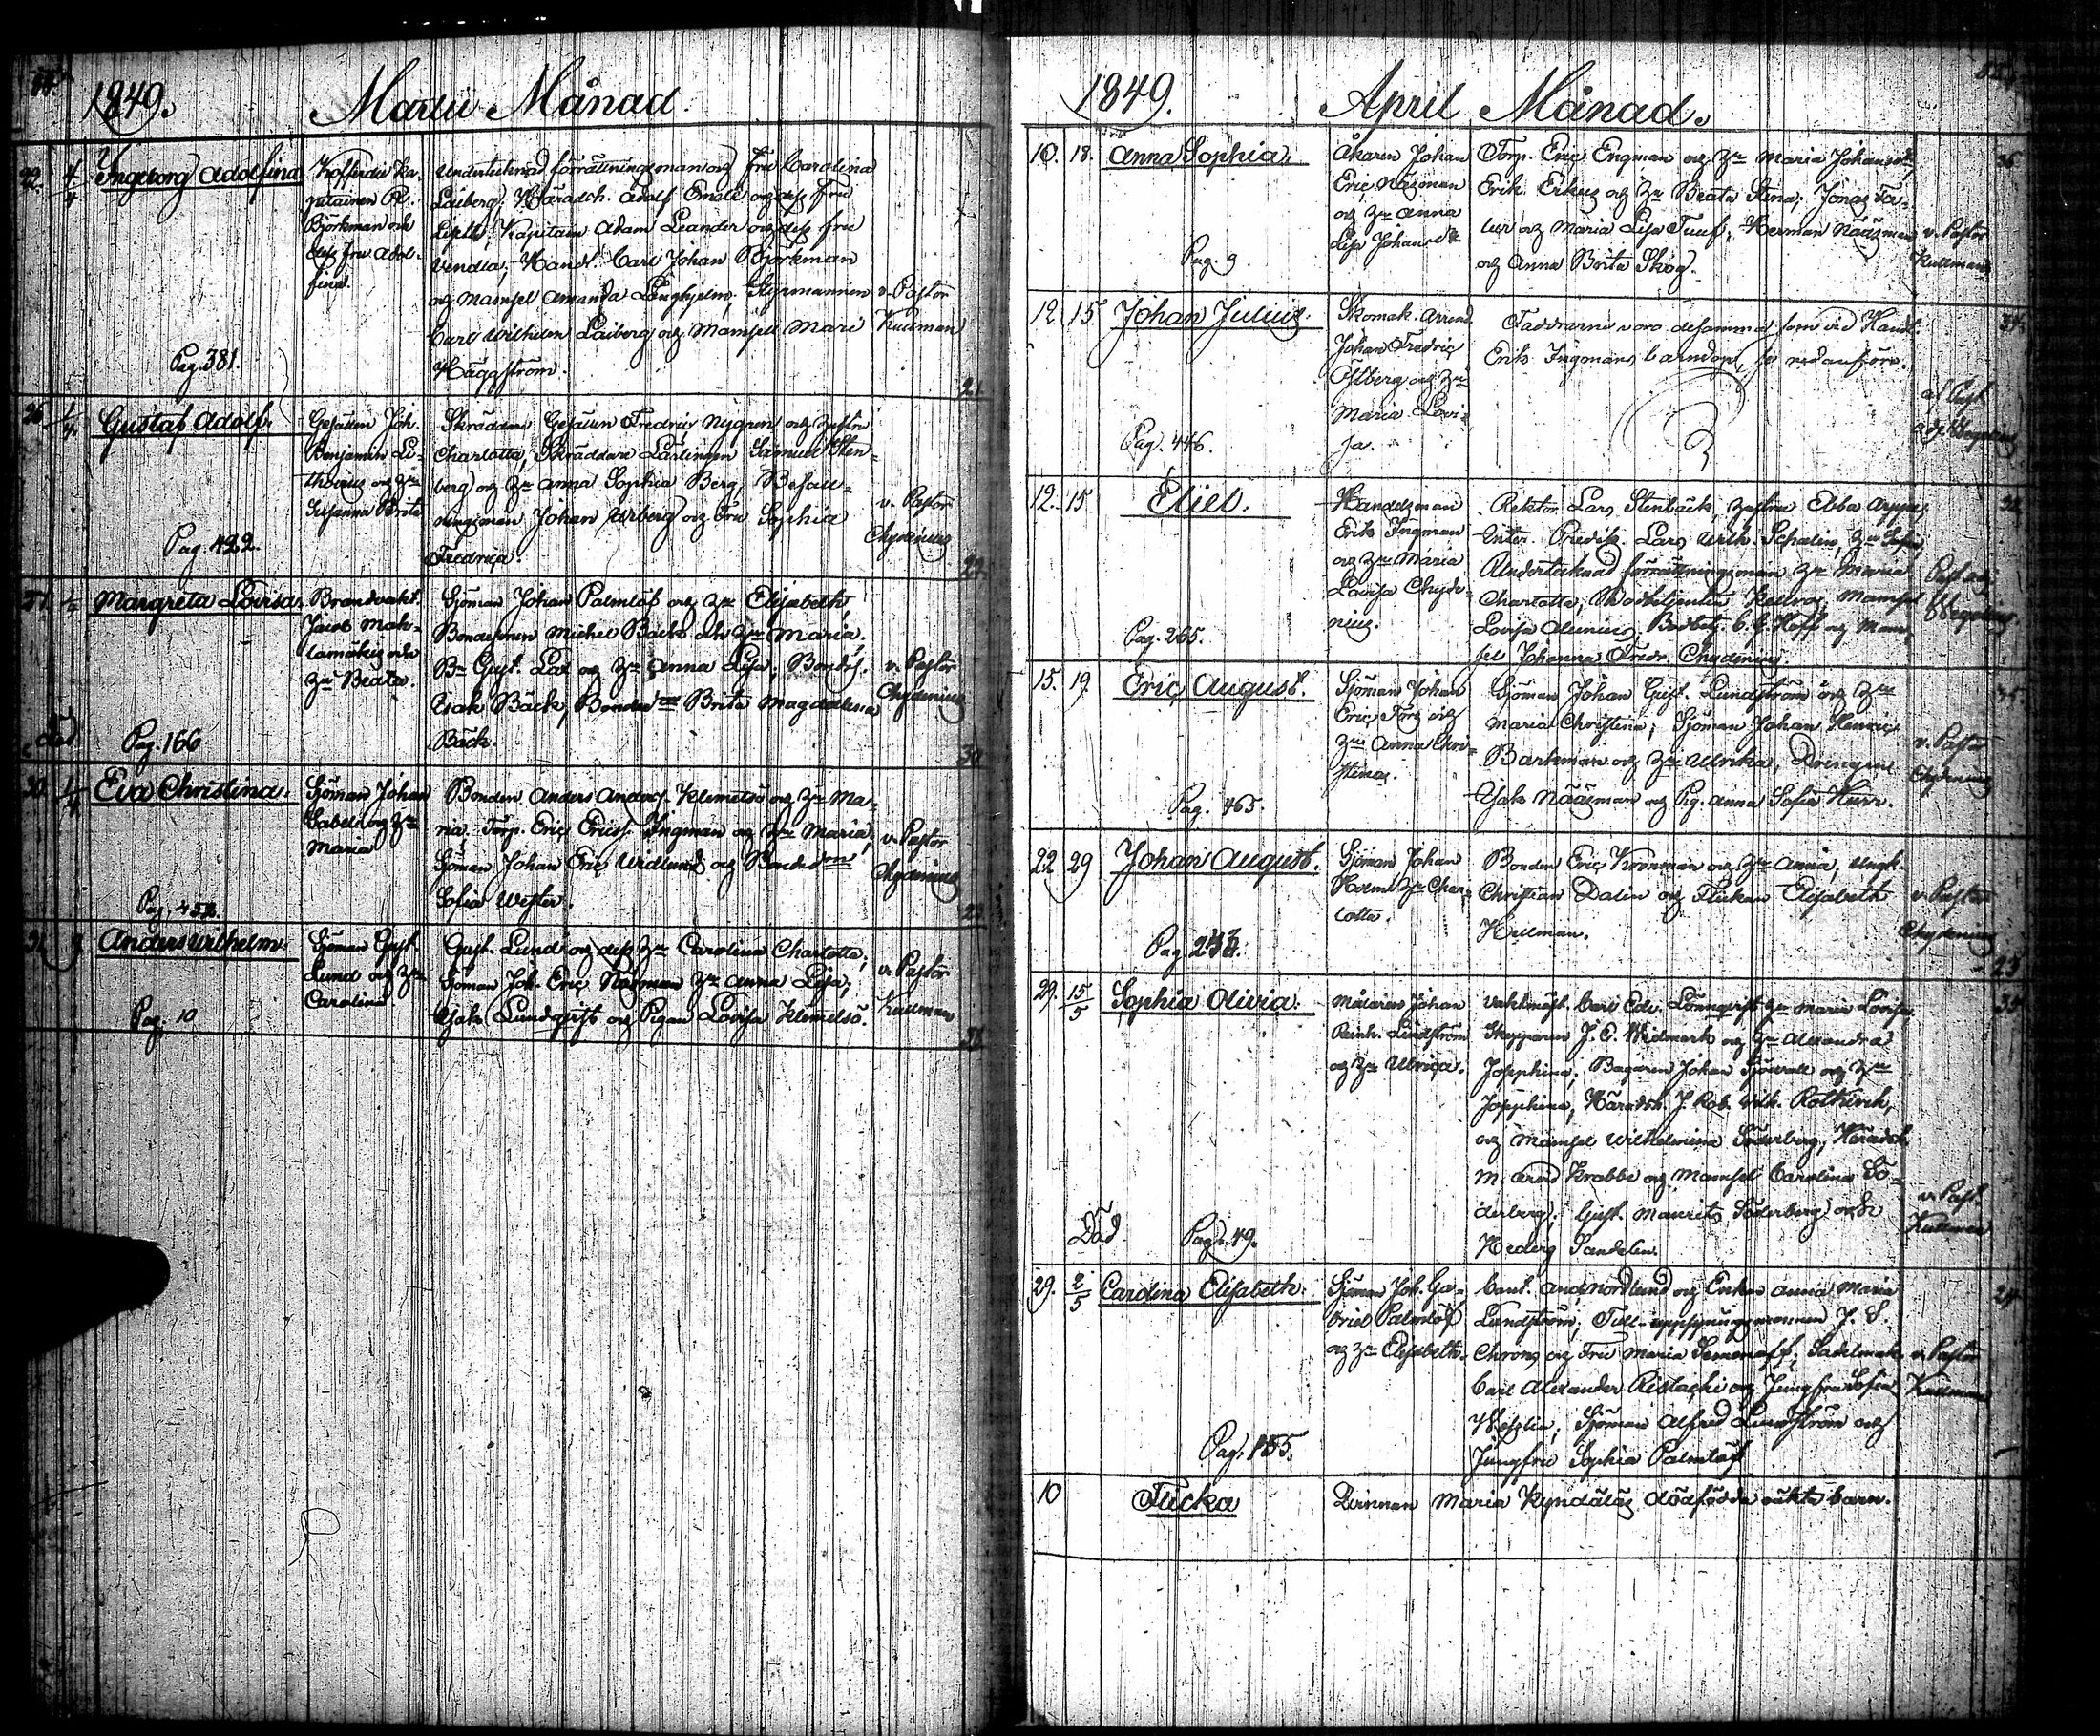 1849. Martii Månad.
22. 4/4 Ingeborg Adolfina
Kofferdie Ka-
pitainen
Björkman och
dess fru Adol-
fina.
Pag. 381.
Undertecknad förrättningsman och Fru Carolina
Laiberg; Häradsh. Adolf Emelé och dess Fru
Lisette; Kapitain Adam Leander och dess fru
Vendla; Handl. Carl Johan Björkman
och Mamsel Amanda Långhjelm; Styrmannen
Carl Wilhelm Laiberg och Mamsell Mari
Häggström.
v. Pastor
Kullman
21.
26 1/4 Gustaf Adolf.
Gesällen Joh.
Benjamin Li-
thovius och Hu
Susanna Brita
Pag. 422.
Skräddare Gesällen Fredric Nygren och hustru
Charlotta; Skräddare Lärlingen Samuel Sten-
berg och Hu Anna Sophia Berg; Befall-
ningsman Johan Wiberg och Fru Sophia
Fredrica.
v. Pastor
Chydenius
22.
27 1/4 Margreta Lovisa.
Brandvakt.
Jacob Mah-
lamäki och
Hu Beata.
död
Pag. 166
Sjöman Johan Palmlöf och Hu Elisabeth,
Bondesonen Michel Bäck och Hu Maria;
Bn Gust. Lax och Hu Anna Lisa; Bondes.
Isak Bäck, Bondedotr Brita Magdalena
Bäck.
v. Pastor
Chydenius
30
30. 1/4 Eva Christina.
Sjöman Johan
Gabels och Hu
Maria
Pag. 452.
Bonden Anders Anders. Klemetsö och Hu Ma-
ria. Torp. Eric Erics. Ingman och Hu Maria;
Sjöman Johan Eric Widlund och Bondedotr
Sofia Wester.
v. Pastor
Chydenius
31 9 Anders Wilhelm.
Sjöman Gust.
Lund och Hu
Carolina
Pag. 10
Gust. Lund och dess Hu Carolina Charlotta;
Sjöman Joh. Eric Näsman Hu Anna Lisa;
Isak Lundqvist och Pigan Lovisa Klemetsö.
v. Pastor
Kullman
1849. April Månad.
10. 18. Anna Sophia.
Åkaren Johan
Eric Näsman
och Hu Anna
Lisa Johansdr
Pag. 9
Torp. Eric Engman och Hu Maria Johansdr,
Erik Erkus och Hu Beata Stina; Jonas Ta-
ler och Maria Lisa Tuuf; Herman Nääsman
och Anna Brita Skog.
v. Pastor
Kullman
12. 15. Johan Julius.
Skomak. Arrend.
Johan Fredric
Östberg och Hu
Maria Lovi-
sa.
Pag. 446.
Faddrarne voro desamma som vid Handl.
Erik Ingmans barndop, se nedanföre.
12. 15 Eliel.
Handelsman
Erik Ingman
och Hu Maria
Lovisa Chyde-
nius.
Pag. 265.
Rektor Lars Stenbäck, hustru Ebba Arppe;
Inter. Predik. Lars Wilh. Schalin, Hu
Undertecknad förrättningsman Hu Maria
Charlotta; Mamsel
Lovisa Alenius; Bodbetj. C. G. Hoff och Mam-
sel Johanna Fredr. Chydenius.
15. 19. Eric August.
Sjöman Johan
Eric Fors och
Hu Anna Chri-
stina.
Pag. 465.
Sjöman Johan Gust. Lundström och Hu
Maria Christina; Sjöman Johan Henric
Barkman och Hu Ulrika, Drängen
Isak Nääsman och Pig. Anna Sofia Hurr.
v. Pastor
Chydenius
22 29 Johan August.
Sjöman Johan
Holm Hu Char-
lotta.
Bonden Eric Kronman och Hu Anna, Ungk.
Christian Dalin och Flickan Elisabeth
Hellman.
v. Pastor
Chydenius
23
29. 15/5 Sophia Olivia.
Målaren Johan
Reinh. Lindström
och Hu Ulrica.
Död Pag. 49.
Vaktmäst. Carl Edv. Lönnqvist Hu Maria Lovisa.
Skepparen J. E. Widmark och Hu Alexandra
Josephina; Bagaren Johan Sjövall och Hu
Josephina; Häradsh. J. Rob. Wilh. Rotkirch,
och Mamsel Wilhelmina Söderberg; Häradsh.
M. Arvid Krabbe och Mamsel Carolina Sö-
derberg; Gust. Maurits Söderberg och
Hedvig Sandelin.
v. Past.
Kullman
29. 2/5 Carolina Elisabeth.
Sjöman Joh. Ga-
briel Palmlöf
och Hu Elisabeth.
Pag. 155.
Cant. And. Nordlund och Enkan Anna Maria
Lundström; Tull-uppsyningsmannen J. E.
Chrons och Fru Maria Semenoff; Sadelmak.
Carl Alexander Ristaski och Jungfru Sofia
Wesslin; Sjöman Alfred Lundström och
Jungfru Sophia Palmlöf
v. Pastor
Kullman
10 Flicka
Qvinnan Maria Kyndäläs dödfödda oäkta barn.